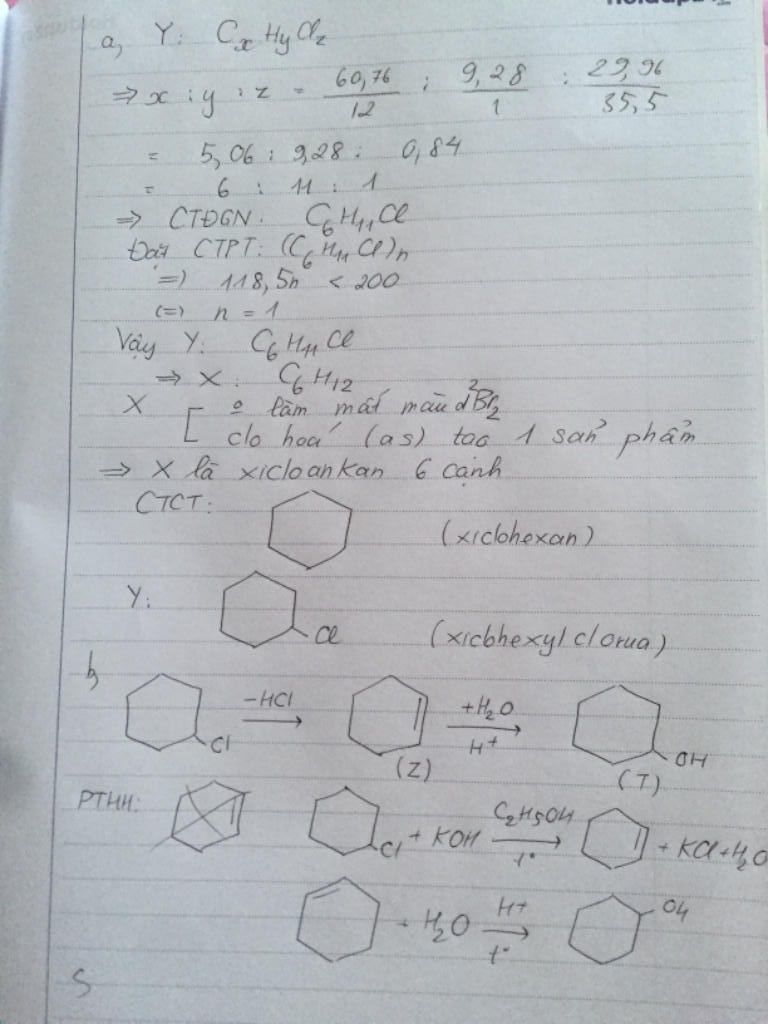 a, Y: CxHyClz
=> x : y : z = 60,76/12 : 9,28/1 : 29,96/35,5
= 5,06 : 9,28 : 0,84
= 6 : 11 : 1
=> CTĐGN: C6H11Cl
Đặt CTPT: (C6H11Cl)n
=) 118,5n < 200
(=) n = 1
Vậy Y: C6H11Cl
=> X: C6H12
X [ o làm mất màu d2Br2
clo hoá (as) tạo 1 sản phẩm
=> X là xicloankan 6 cạnh
CTCT: (xiclohexan)
Y: Cl (xiclohexyl clorua)
b, Cl -HCl → (Z) +H2O H+ → OH (T)
PTHH: Cl + KOH C2H5OH t° → + KCl + H2O
+ H2O H+ t° → OH